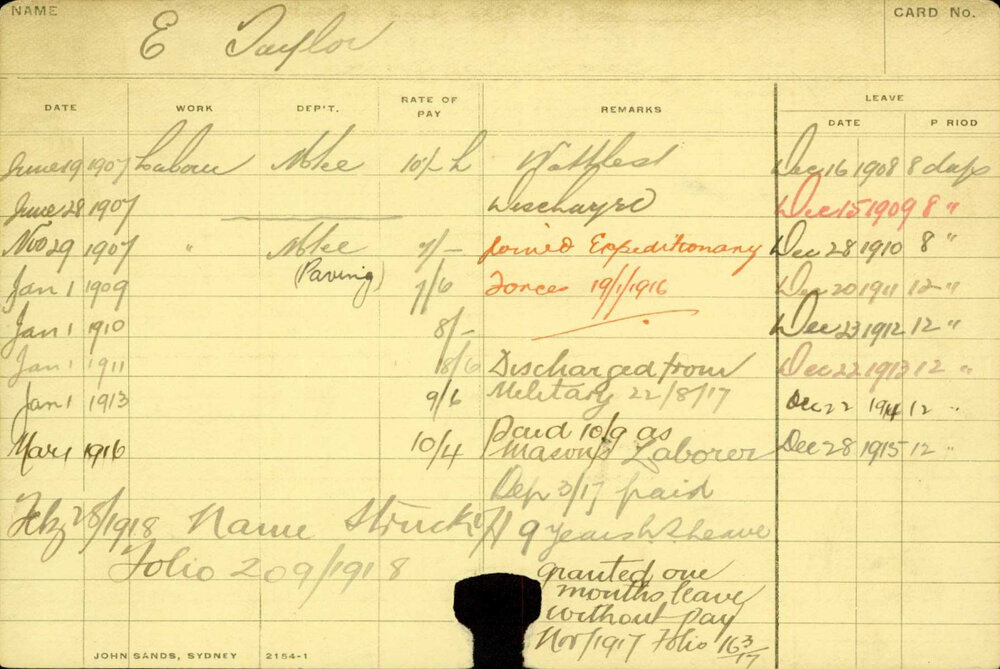 NAME
E Taylor
CARD No.
DATE WORK DEP'T. RATE OF PAY REMARKS LEAVE
DATE P RIOD
June 19 1907 Labour 10/- Dec 16 1908 8 days
June 28 1907 Dec 15 1909 8 "
Nov 29 1907 " 7/- Joined Expeditionary Dec 28 1910 8 "
(Paving)
Jan 1 1909 7/6 Forces 19/1/1916 Dec 20 1911 12 "
Jan 1 1910 8/- Dec 23 1912 12 "
Jan 1 1911 8/6 Discharged from Dec 22 1913 12 "
Jan 1 1913 9/6 Military 22/8/17 Dec 22 1914 12 "
Mar 1 1916 10/4 Paid 10/9 as Dec 28 1915 12 "
Mason's Laborer
Sep 3/17 paid
Feb 28/1918 Name Struck 9 years
Folio 209/1918
granted one
months leave
without pay
Nov/1917 Folio 163/17
JOHN SANDS, SYDNEY 2154-1